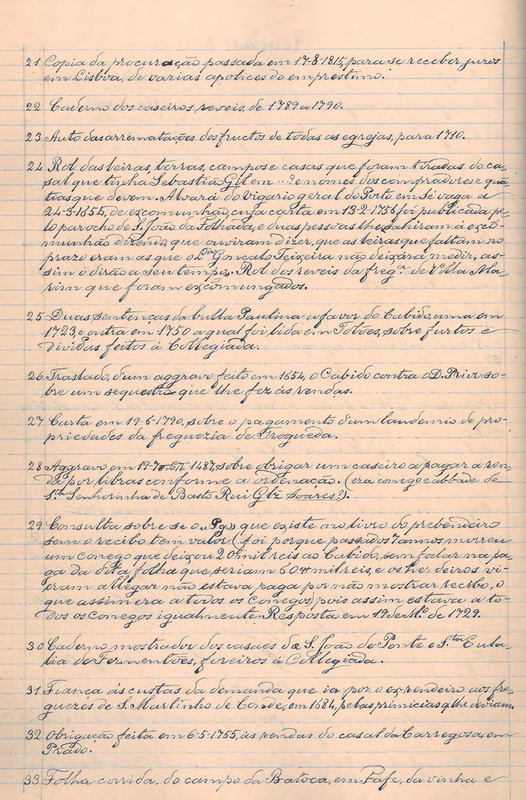 21 Copia da procuração passada em 17-8-1815, para se receber juros
em Lisboa, de varias apolices do emprestimo.
22 Caderno dos caseiros reveis, de 1789 a 1790.
23 Auto das arrematações dos fructos de todas as egrejas, para 1710.
24 Rol das leiras, terras, campos e casas que foram tiradas do ca-
sal que tinha Sebastião Gil em ...? e nomes dos compradores e quan-
tias que devem. Alvará do vigario geral do Porto em Sé vaga a
24-3-1654, de excomunhão, cuja carta em 13-2-1755 foi publicada pe-
lo parocho de S. João da Folhada, e duas pessoas lhe sahiram á exco-
munhão dizendo, que ouviram dizer, que as leiras que faltam no
prazo eram as que o Gonçalo Teixeira não deixára medir, as-
sim o dirão a seu tempo. Rol dos reveis da freg.ª de Villa Ma-
rim que foram excomungados.
25 Duas sentenças da bulla Paulina a favor do Cabido, uma em
1723, e outra em 1750 a qual foi lida em Tolões, sobre furtos e
dividas feitos á Collegiada.
26 Traslado, d'um aggravo feito em 1654, o Cabido contra o D. Prior so-
bre um sequestro que lhe fez ás rendas.
27 Carta em 19-5-1790, sobre o pagamento d'um laudemio de pro-
priedades da freguezia de Brogueda.
28 Aggravo em 19-7 1487, sobre obrigar um caseiro a pagar a ren-
da por libras conforme a ordenação. (era conego e abbade de
S.ta Senhorinha de Basto Rui Glz soares?).
29 Consulta sobre se o "Pg." que existe no livro do prebendeiro
sem o recibo tem valor (foi porque passados 7 annos morreu
um conego que deixou 20 mil reis ao Cabido, sem falar na pa-
ga da dita folha que seriam 60 mil reis, e os herdeiros vi-
eram allegar não estava paga por não mostrar recibo, o
que assim era a todos os conegos) pois assim estava a to-
dos os conegos igualmente. Resposta em 19 de M.ço de 1729.
30 Caderno mostrador dos casaes de S. João de Ponte e S.ta Eula-
lia de Fermentões, foreiros á Collegiada.
31 Fiança ás custas da demanda que ia pôr o ex-rendeiro aos fre-
guezes de S. Martinho de Conde, em 1684, pelas primicias q lhe deviam.
32 Obrigação feita em 6-5-1755, ás rendas do casal da Carregosa, em
Prado.
33 Folha corrida, do campo da Batoca, em Fafe, da vinha e